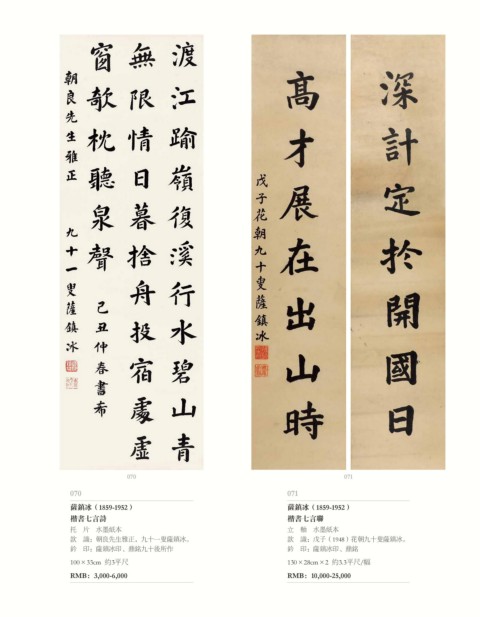 渡江踰嶺復溪行水碧山青
無限情日暮捨舟投宿處虛
窗欹枕聽泉聲 己丑仲春書希
朝良先生雅正 九十一叟薩鎮冰
深計定扵開國日
高才展在出山時
戊子花朝九十叟薩鎮冰
070
071
070
薩鎮冰（1859-1952）
楷書七言詩
托 片 水墨紙本
款 識：朝良先生雅正。九十一叟薩鎮冰。
鈐 印：薩鎮冰印、鼎銘九十後所作
100×33cm 約3平尺
RMB：3,000-6,000
071
薩鎮冰（1859-1952）
楷書七言聯
立 軸 水墨紙本
款 識：戊子（1948）花朝九十叟薩鎮冰。
鈐 印：薩鎮冰印、鼎銘
130×28cm×2 約3.3平尺/幅
RMB：10,000-25,000